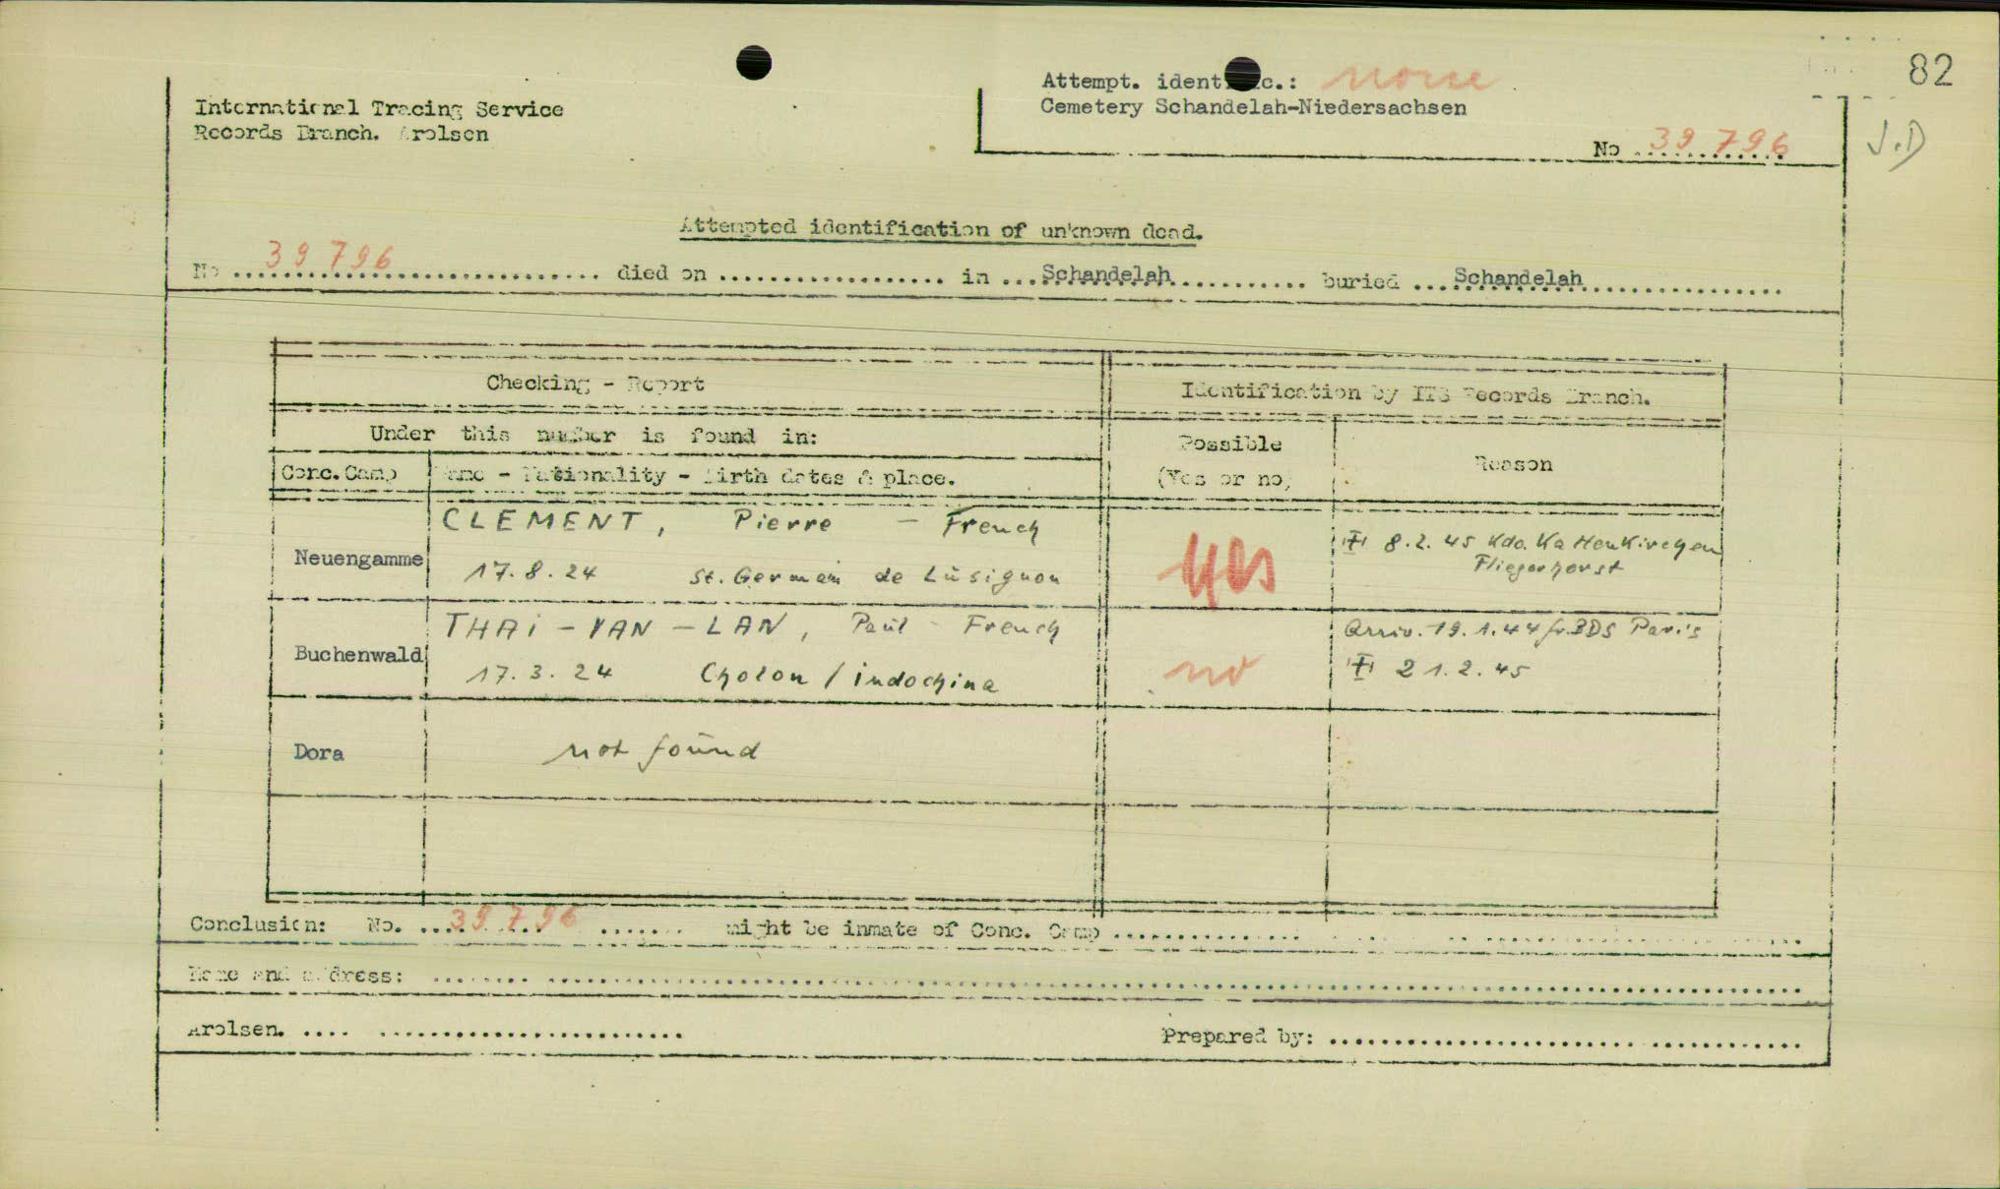 82
International Tracing Service
Records Branch. Arolsen
Attempt. ident c.: none
Cemetery Schandelah-Niedersachsen
No 39 796
J.D
Attempted identification of unknown dead.
No 39 796 died on .................. in ...Schandelah............ buried ...Schandelah.................
Checking - Report
Identification by ITS Records Branch.
Under this number is found in:
Possible
(Yes or no)
Reason
Conc. Camp
Name - Nationality - Birth dates & place.
Neuengamme
CLEMENT, Pierre - French
17.8.24 St. Germain de Lusignon
yes
8.2.45 Kdo. Kaltenkirchen
Fliegerhorst
Buchenwald
THAI-VAN-LAN, Paul - French
17.3.24 Cholon / indochina
no
Arriv. 19.1.44 fr. BDS Paris
21.2.45
Dora
not found
Conclusion: No. 39 796 might be inmate of Conc. Camp ..............
Name and address: ........
Arolsen. .... ........................
Prepared by: ........................